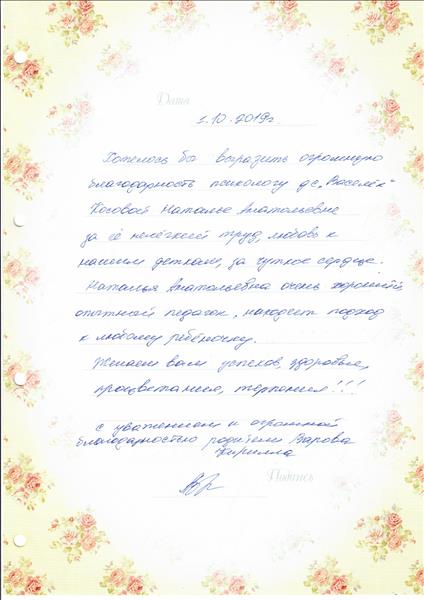 Дата
1.10.2019г.
Хотелось бы выразить огромную
благодарность психологу дс „Василёк"
Косовой Наталье Анатольевне
за её нелёгкий труд, любовь к
нашим деткам, за чуткое сердце.
Наталья Анатольевна очень хороший
опытный педагог, находит подход
к любому ребёночку.
Желаем вам успехов, здоровья,
процветания, терпения!!!
с уважением и огромной
благодарностью родители
Кирилла
Подпись